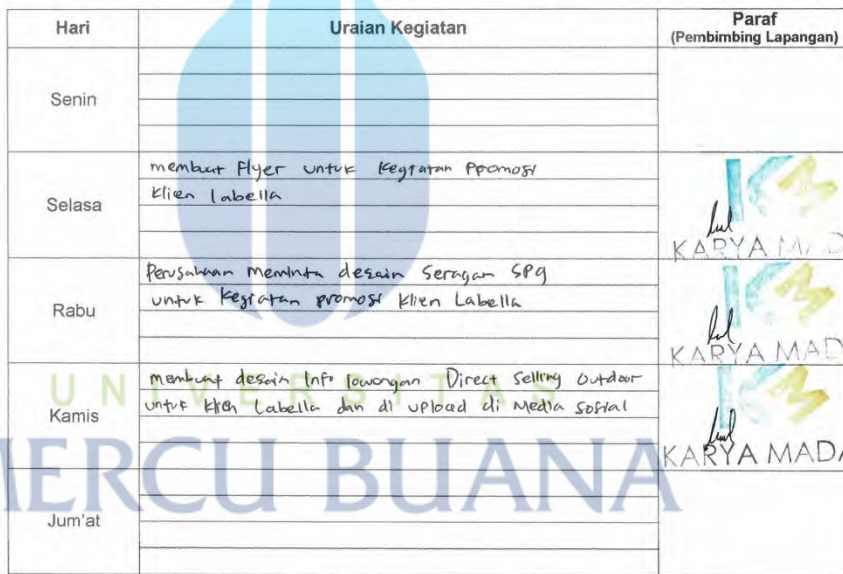 Hari Uraian Kegiatan Paraf
(Pembimbing Lapangan)
Senin
Selasa
membuat Flyer untuk Kegiatan Promosi
Klien Labella
KARYA MAD
Rabu
Perusahaan meminta desain Seragam SPG
untuk Kegiatan promosi Klien Labella
KARYA MAD
Kamis
membuat desain Info lowongan Direct Selling Outdoor
untuk Klien Labella dan di upload di Media sosial
KARYA MADA
UNIVERSITAS
MERCU BUANA
Jum'at